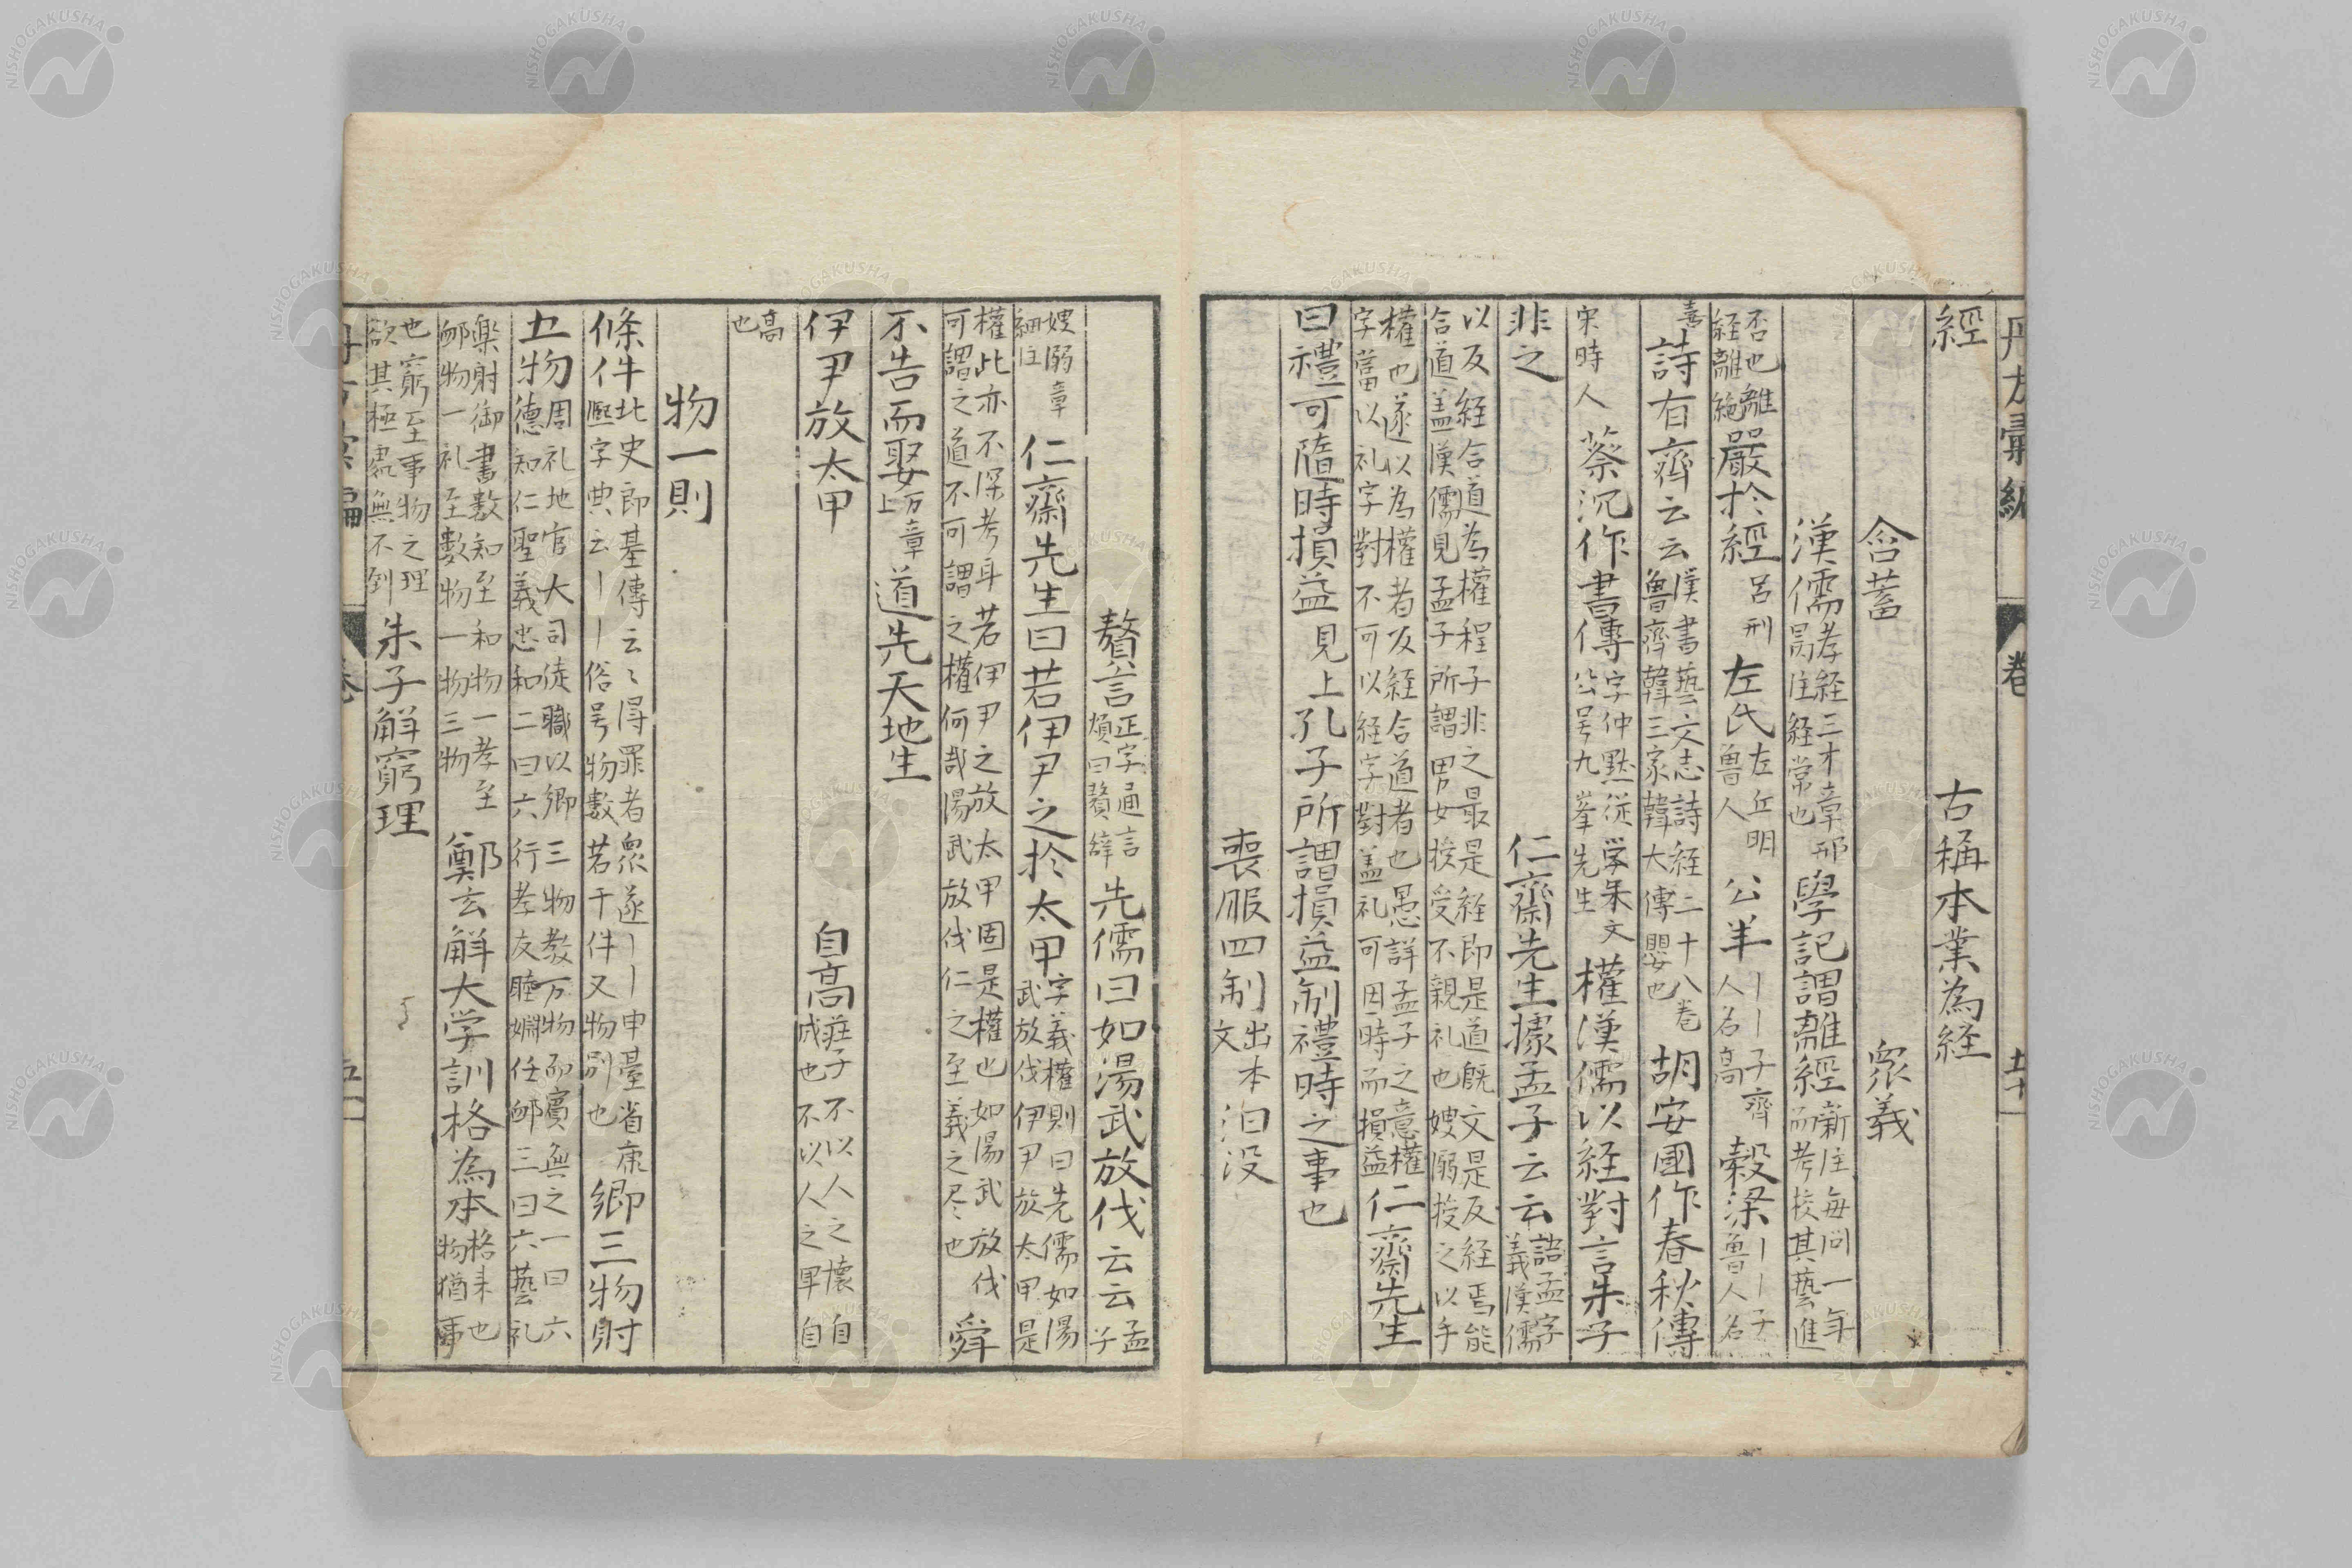 經　古稱本業為経
含蓄　衆義
漢儒孝経三才章邢昺注経常也學記謂離經新注毎問一年而考校其藝進
否也離経離絶嚴於經呂刑左氏左丘明魯人公羊｜｜子齊人名高穀梁｜｜子魯人名
喜詩有齊云云漢書藝文志詩経二十八巻魯齊韓三家韓大傳嬰也胡安國作春秋傳
宋時人蔡沉作書傳字仲黙従学朱文公号九峯先生權漢儒以経對言朱子
非之　仁齋先生據孟子云云語孟字義漢儒
以反経合道為權程子非之最是経即是道既文是反経焉能合道盖漢儒見孟子所謂男女授受不親礼也嫂溺授之以手
權也遂以為權者反経合道者也愚詳孟子之意權字當以礼字對不可以経字對盖礼可因時而損益仁齋先生
曰禮可隨時損益見上孔子所謂損益制禮時之事也
喪服四制出本文汩没
贅言正字通言煩曰贅辭先儒曰如湯武放伐云云孟子
嫂溺章細注仁齋先生曰若伊尹之於太甲字義權則曰先儒如湯武放伐伊尹放太甲是
權此亦不深考耳若伊尹之放太甲固是權也如湯武放伐可謂之道不可謂之權何哉湯武放伐仁之至義之尽也舜
不告而娶万章上道先天地生
伊尹放太甲　自高莊子不以人之壞自成也不以人之卑自
高也
物一則
條件北史郎基傳云々得罪者衆遂｜｜申臺省康熈字典云｜｜俗号物數若干件又物別也卿三物財
五物周礼地官大司徒職以卿三物教万物而賓興之一曰六德知仁聖義忠和二曰六行孝友睦婣任卹三曰六藝礼
楽射御書数知至和物一孝至卹物一礼至數物一物三物鄭玄解大学訓格為本格来也物猶事
也窮至事物之理欲其極處無不到朱子解窮理